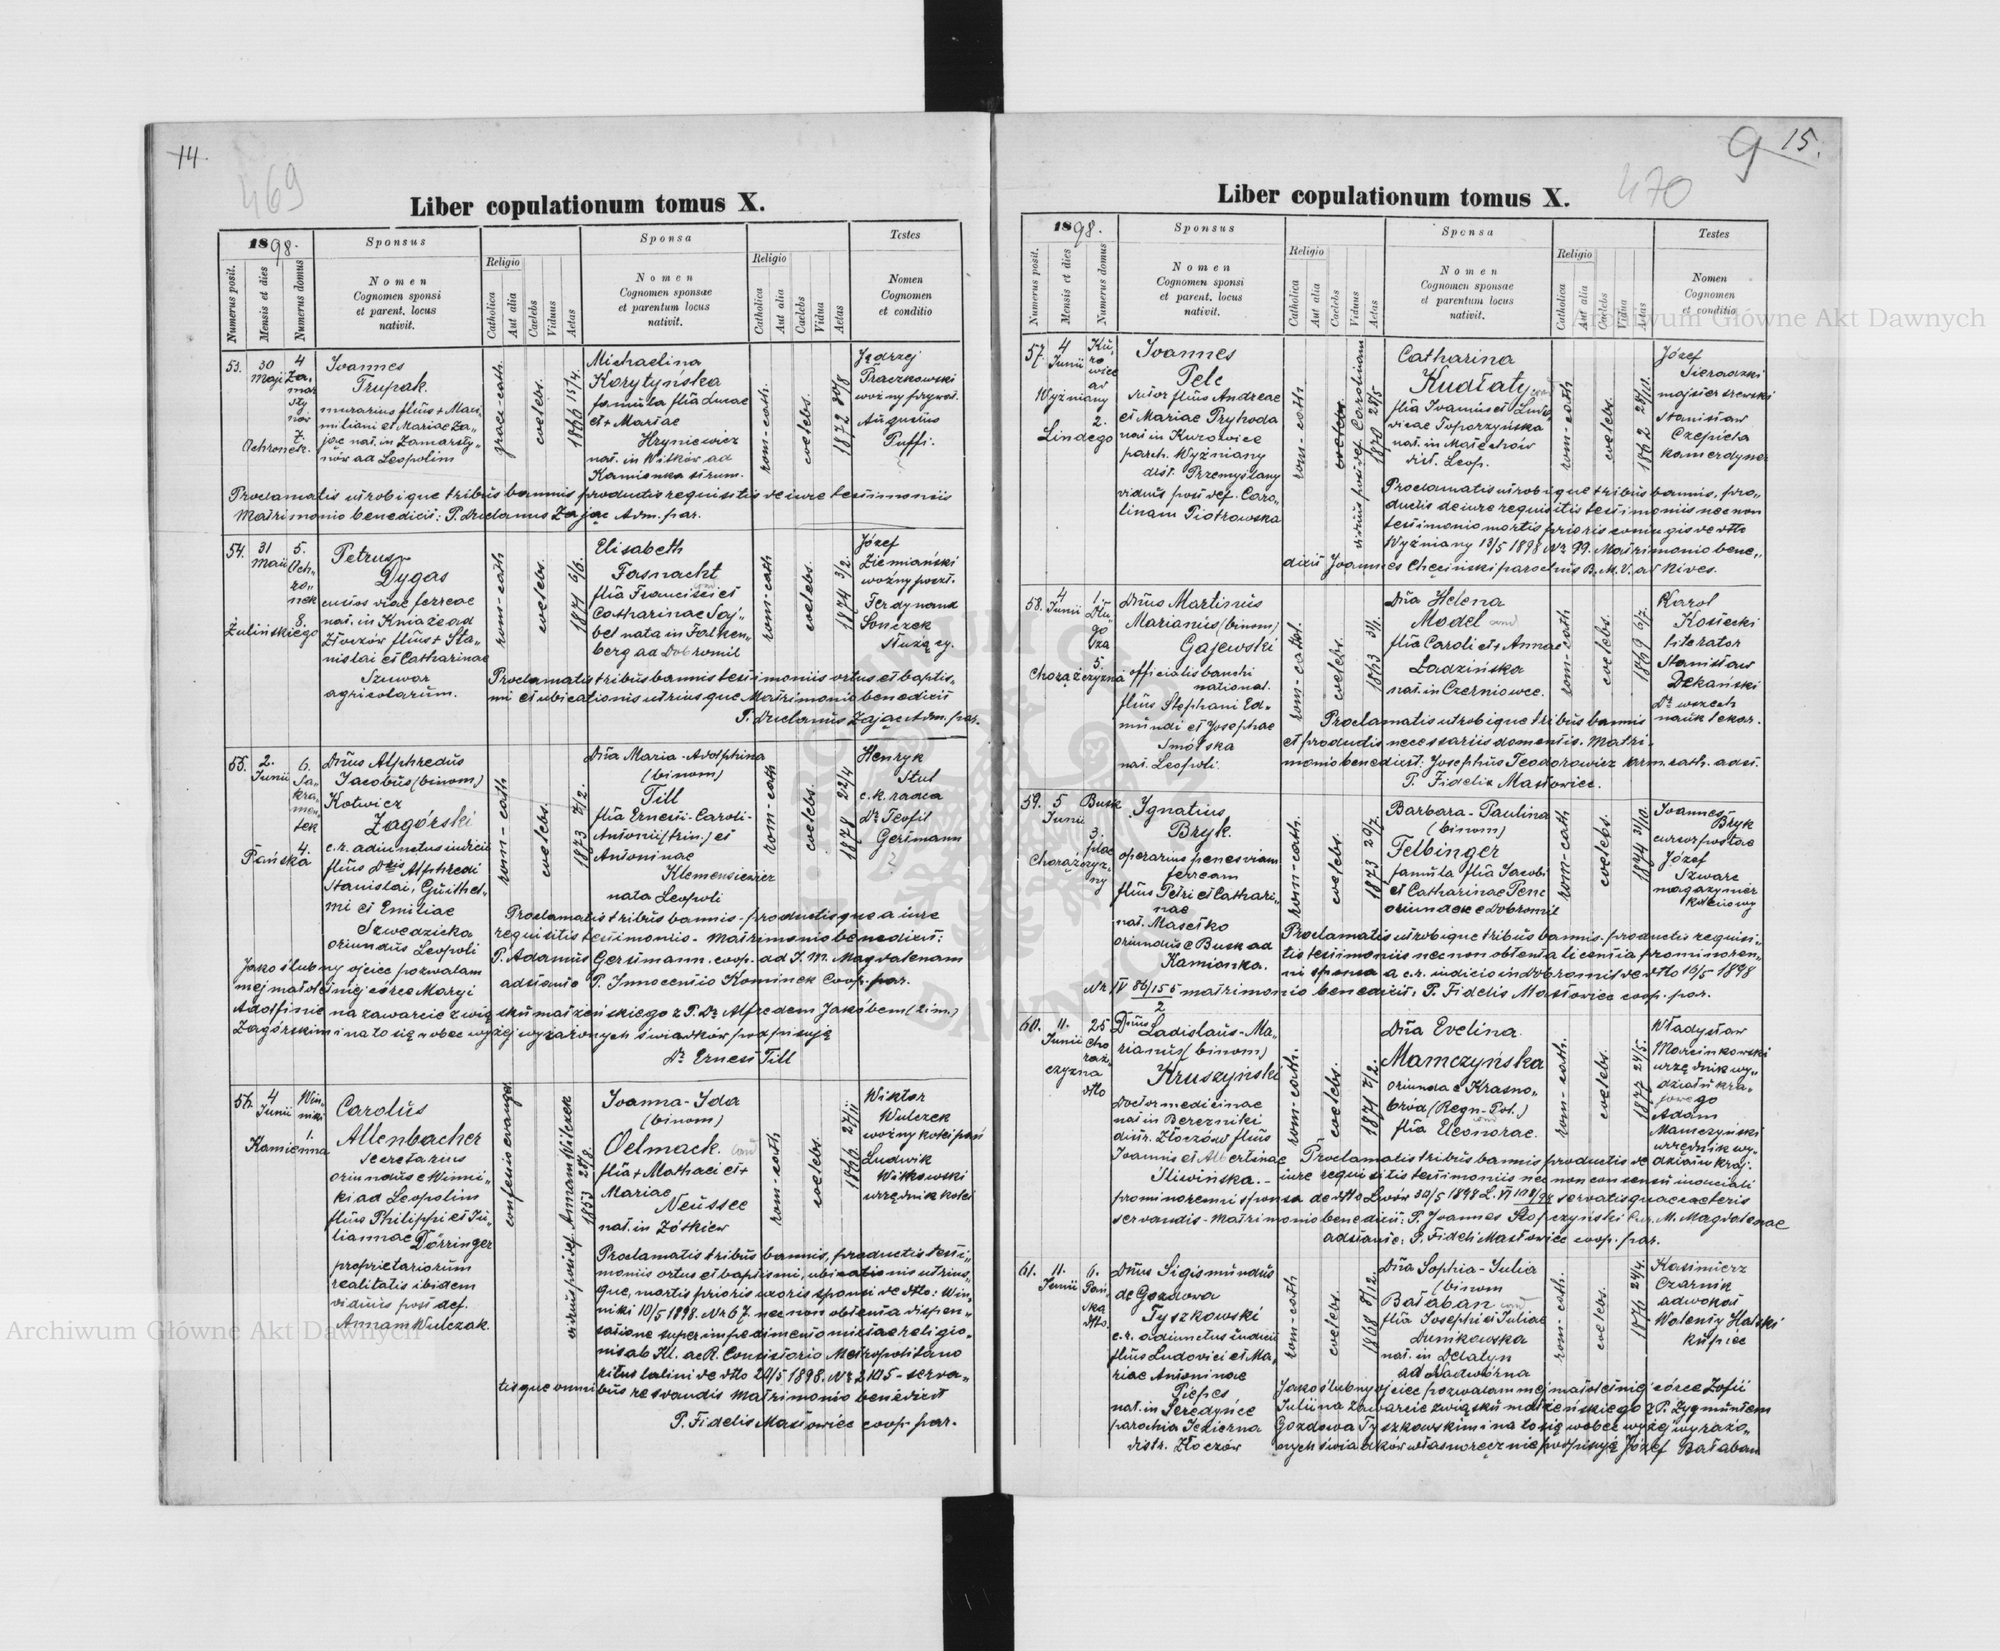 14.
469
Liber copulationum tomus X.
1898.
Sponsus
Sponsa
Testes
Numerus posit.
Mensis et dies
Numerus domus
Nomen
Cognomen sponsi
et parent. locus
nativit.
Religio
Catholica
Aut alia
Caelebs
Viduus
Aetas
Nomen
Cognomen sponsae
et parentum locus
nativit.
Religio
Catholica
Aut alia
Caelebs
Vidua
Aetas
Nomen
Cognomen
et conditio
53.
30
Maji
4
Za,
mar
sty
nów
7.
Ochronek.
Joannes
Trupak
murarius flius + Maxi
miliani et Mariae Za„
jąc nat. in Zamarsty„
nów ad Leopolim
graec-cath.
coelebs.
1866 15/4.
Michaelina
Korytyńska
famula flia Lucae
et + Mariae
Hryniewicz
nat. in Witków ad
Kamionka strum.
rom-cath.
coelebs.
Jędrzej
Praczkowski
woźny prywat.
Augustus
Puffi.
Proclamatis utrobique tribus bannis productis requisitis de iure testimoniis
Matrimonio benedixit: P. Duclanus Zając Adm. par.
54.
31
Maii
5.
Och„
ro„
nek
8.
Żulińskiego
Petrus
Dygas
custos viae ferreae
nat. in Kniaże ad
Złoczów flius + Sta„
nislai et Catharinae
Szuwar
agricolarum.
rom-cath
coelebs.
1871 6/6.
Elisabeth
Fasnacht
flia Francisci et
Catharinae Saj„
bel nata in Falken„
berg ad Dobromil
rom-cath
coelebs.
1874 3/2.
Józef
Ziemiański
woźny poczt.
Ferdynand
Sonczek
służący.
Proclamatis tribus bannis testimoniis ortus et baptis„
mi et ubicationis utriusque Matrimonio benedixit
P. Duclanus Zając Adm. par.
55.
2.
Junii
6.
Sa„
kra„
men„
tek
4.
Pańska
Dnus Alphredus
Jacobus (binom)
Kotwicz
Zagórski
c.r. adiunctus iudicii
flius Dris Alphredi
Stanislai, Guilhel„
mi et Emiliae
Szwedzicka
oriundus Leopoli
rom-cath
coelebs.
1873 2/2.
Dna Maria-Adolphina
(binom)
Till
flia Ernesti-Caroli-
Antonii (trin.) et
Antoninae
Klemensiewicz
nata Leopoli
rom-cath
coelebs.
1878 22/4
Henryk
Stul
c.k. radca
Dr Teofil
Gerstmann
Proclamatis tribus bannis - productisque a iure
requisitis testimoniis - Matrimonio benedixit:
P. Adamus Gerstmann. coop. ad S. M. Magdalenam
adstante P. Innocentio Kominek Coop. par.
Jako ślubny ojciec pozwalam
mej małoletniej córce Maryi
Adolfinie na zawarcie związku małżeńskiego z P. Dr Alfredem Jakóbem (2im.)
Zagórskim i na to się wobec wyżej wyrażonych świadków podpisuję
Dr Ernest Till
56.
4
Junii
Win„
niki
1.
Kamienna
Carolus
Altenbacher
secretarius
oriundus e Winni„
ki ad Leopolim
flius Philippi et Ju„
liannae Dörringer
proprietariorum
realitatis ibidem
viduus post def.
Annam Wulczak.
confessio evange
viduus post def. Annam Wilczek
1853 28/8.
Joanna-Ida
(binom)
Oelmack.
flia + Mathaei et +
Mariae
Neussee
nat. in Żółkiew
rom-cath
coelebs.
1866 27/11
Wiktor
Wulczek
woźny kolei pań
Ludwik
Witkowski
urzędnik kolei
Proclamatis tribus bannis, productis testi„
moniis ortus et baptismi, ubicationis utrius„
que, mortis prioris uxoris sponsi de dtto: Win„
niki 10/5 1898. Nr 67. nec non obtenta dispen„
satione super impedimento mixtae religio„
nis ab Ill. ac R. Consistorio Metropolitano
ritus latini de dtto 20/5 1898. Nr 2105 - serva„
tisque omnibus servandis Matrimonio benedixit
P. Fidelis Masłowiec coop. par.
9
15.
470
Liber copulationum tomus X.
1898.
Sponsus
Sponsa
Testes
Numerus posit.
Mensis et dies
Numerus domus
Nomen
Cognomen sponsi
et parent. locus
nativit.
Religio
Catholica
Aut alia
Caelebs
Viduus
Aetas
Nomen
Cognomen sponsae
et parentum locus
nativit.
Religio
Catholica
Aut alia
Caelebs
Vidua
Aetas
Nomen
Cognomen
et conditio
57.
4
Junii
Ku,
ro
wice
ad
Wyżniany
2.
Lindego
Joannes
Pelc
sutor flius Andreae
et Mariae Pryhoda
nat. in Kurowice
paroch. Wyżniany
dist. Przemyślany
viduus post def. Caro„
linam Piotrowska
rom-cath
coelebs.
viduus post def. Carolinam
1870 28/5
Catharina
Kudłaty
flia Joannis et Ludo
vicae Toporzyńska
nat. in Małechów
dist. Leop.
rom-cath
coelebs.
1862 28/10.
Józef
Sieradzki
majster szewski
Stanisław
Czepiela
kamerdyner
Proclamatis utrobique tribus bannis, pro„
ductis de iure requisitis testimoniis nec non
testimonio mortis prioris coniugis de dtto
Wyżniany 13/5 1898 Nr 99. Matrimonio bene„
dixit Joannes Chęciński parochus B. M. V. ad Nives.
58.
4
Junii
1.
Dłu„
go
sza
5.
Chorążczyzna
Dnus Martinus
Marianus (binom)
Gajewski
officialis banchi
national.
flius Stephani Ed„
mundi et Josephae
Smólska
nat. Leopoli.
rom-cath.
coelebs.
1863 3/1.
Dna Helena
Model
flia Caroli et + Annae
Ładzińska
nat. in Czerniowce.
rom-cath
coelebs.
1869 6/7.
Karol
Kosiecki
literator
Stanisław
Dekański
Dr wszech
nauk lekar.
Proclamatis utrobique tribus bannis
et productis necessariis domentis. Matri„
monio benedixit: Josephus Teodorowicz arm. cath. adst.
P. Fidelis Masłowiec.
59.
5
Junii
Busk
3.
plac
Chorążczyz„
ny
Ignatius
Bryk.
operarius penes viam
ferream
flius Petri et Cathari„
nae
nat. Maseťko
oriundus e Busk ad
Kamionka.
rom-cath.
coelebs.
1873 29/7.
Barbara-Paulina
(binom)
Felbinger
famula flia Jacobi
et Catharinae Penc
oriundae e Dobromil
rom-cath
coelebs.
1874 31/10.
Joannes
Bryk
cursor postae
Józef
Szwarc
magazynier
kolejowy
Proclamatis utrobique tribus bannis. productis requisi„
tis testimoniis nec non obtenta licentia pro minoren„
ni sponsa a c.r. iudicio in Dobromil de dtto 16/5 1898
Nr IV 86/155/2 matrimonio benedixit: P. Fidelis Masłowiec coop. par.
60.
11.
Junii
25
Cho
rąż„
czyzna
dtto
Dnus Ladislaus-Ma„
rianus (binom)
Kruszyński
Doctor medicinae
nat in Berezniki
distr. Złoczów flius
Joannis et Albertinae
Śliwińska.
rom-cath.
coelebs.
1871 2/2.
Dna Evelina
Mamczyńska
oriunda e Krasno„
bród (Regn. Pol.)
flia Eleonorae.
rom-cath.
coelebs.
1877 24/5.
Władysław
Marcinkowski
urzędnik wy„
działu kra„
jowego
Adam
Mamczyński
urzędnik wy„
działu kraj.
Proclamatis tribus bannis productis de
iure requisitis testimoniis nec non consensu iudiciali
pro minorenni sponsa de dtto Lwów 30/5 1898 L. VI 108/98 servatisque caeteris
servandis - Matrimonio benedixit: P. Joannes Stopczyński Cur. M. Magdalenae
adstante: P. Fideli Masłowiec coop. par.
61.
11.
Junii
6.
Pań„
ska
dtto.
Dnus Sigismundus
de Gozdowa
Tyszkowski
c.r. adiunctus iudicii
flius Ludovici et Ma„
riae Antoninae
Piepes
nat. in Seredyńce
parochia Jezierna
distr. Złoczów
rom-cath
coelebs.
1868 8/12.
Dna Sophia-Julia
(binom
Bałaban
flia Josephi et Juliae
Dunikowska
nat. in Delatyn
ad Nadwórna
rom-cath.
coelebs.
1876 24/4.
Kasimierz
Czarnik
adwokat
Walenty Halski
kupiec
Jako ślubny ojciec pozwalam mej małoletniej córce Zofii
Julii na zawarcie związku małżeńskiego z P. Zygmuntem
Gozdowa Tyszkowskim i na to się wobec wyżej wyrażo„
nych świadków własnoręcznie podpisuję Józef Bałaban
Archiwum Główne Akt Dawnych
Archiwum Główne Akt Dawnych